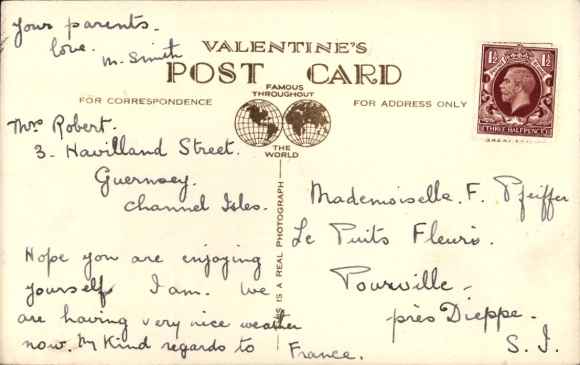 your parents.
love.
M. Smith
VALENTINE'S
POST CARD
FAMOUS
THROUGHOUT
THE
WORLD
FOR CORRESPONDENCE
FOR ADDRESS ONLY
1½ 1½
THREE HALFPENCE
THIS IS A REAL PHOTOGRAPH
Mrs Robert.
3. Havilland Street.
Guernsey.
Channel Isles.
Hope you are enjoying
yourself I am. We
are having very nice weather
now. My Kind regards to
Mademoiselle. F. Pfeiffer
Le Puits Fleuris.
Pourville.
près Dieppe.
S. I.
France.